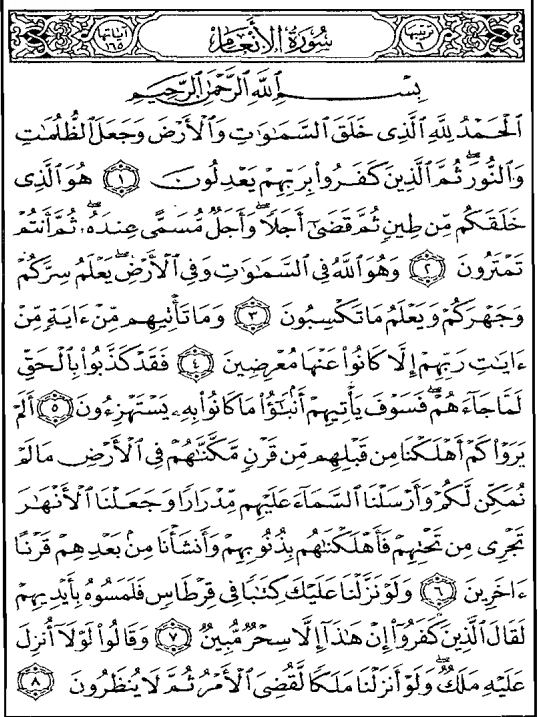 ترتيبها ٦ سُورَةُ الْأَنْعَامِ آياتها ١٦٥
بِسْمِ ٱللَّهِ ٱلرَّحْمَٰنِ ٱلرَّحِيمِ
ٱلْحَمْدُ لِلَّهِ ٱلَّذِى خَلَقَ ٱلسَّمَٰوَٰتِ وَٱلْأَرْضَ وَجَعَلَ ٱلظُّلُمَٰتِ
وَٱلنُّورَ ۖ ثُمَّ ٱلَّذِينَ كَفَرُوا۟ بِرَبِّهِمْ يَعْدِلُونَ ١ هُوَ ٱلَّذِى
خَلَقَكُم مِّن طِينٍ ثُمَّ قَضَىٰٓ أَجَلًا ۖ وَأَجَلٌ مُّسَمًّى عِندَهُۥ ۖ ثُمَّ أَنتُمْ
تَمْتَرُونَ ٢ وَهُوَ ٱللَّهُ فِى ٱلسَّمَٰوَٰتِ وَفِى ٱلْأَرْضِ ۖ يَعْلَمُ سِرَّكُمْ
وَجَهْرَكُمْ وَيَعْلَمُ مَا تَكْسِبُونَ ٣ وَمَا تَأْتِيهِم مِّنْ ءَايَةٍ مِّنْ
ءَايَٰتِ رَبِّهِمْ إِلَّا كَانُوا۟ عَنْهَا مُعْرِضِينَ ٤ فَقَدْ كَذَّبُوا۟ بِٱلْحَقِّ
لَمَّا جَآءَهُمْ ۖ فَسَوْفَ يَأْتِيهِمْ أَنۢبَٰٓؤُا۟ مَا كَانُوا۟ بِهِۦ يَسْتَهْزِءُونَ ٥ أَلَمْ
يَرَوْا۟ كَمْ أَهْلَكْنَا مِن قَبْلِهِم مِّن قَرْنٍ مَّكَّنَّٰهُمْ فِى ٱلْأَرْضِ مَا لَمْ
نُمَكِّن لَّكُمْ وَأَرْسَلْنَا ٱلسَّمَآءَ عَلَيْهِم مِّدْرَارًا وَجَعَلْنَا ٱلْأَنْهَٰرَ
تَجْرِى مِن تَحْتِهِمْ فَأَهْلَكْنَٰهُم بِذُنُوبِهِمْ وَأَنشَأْنَا مِنۢ بَعْدِهِمْ قَرْنًا
ءَاخَرِينَ ٦ وَلَوْ نَزَّلْنَا عَلَيْكَ كِتَٰبًا فِى قِرْطَاسٍ فَلَمَسُوهُ بِأَيْدِيهِمْ
لَقَالَ ٱلَّذِينَ كَفَرُوٓا۟ إِنْ هَٰذَآ إِلَّا سِحْرٌ مُّبِينٌ ٧ وَقَالُوا۟ لَوْلَآ أُنزِلَ
عَلَيْهِ مَلَكٌ ۖ وَلَوْ أَنزَلْنَا مَلَكًا لَّقُضِىَ ٱلْأَمْرُ ثُمَّ لَا يُنظَرُونَ ٨